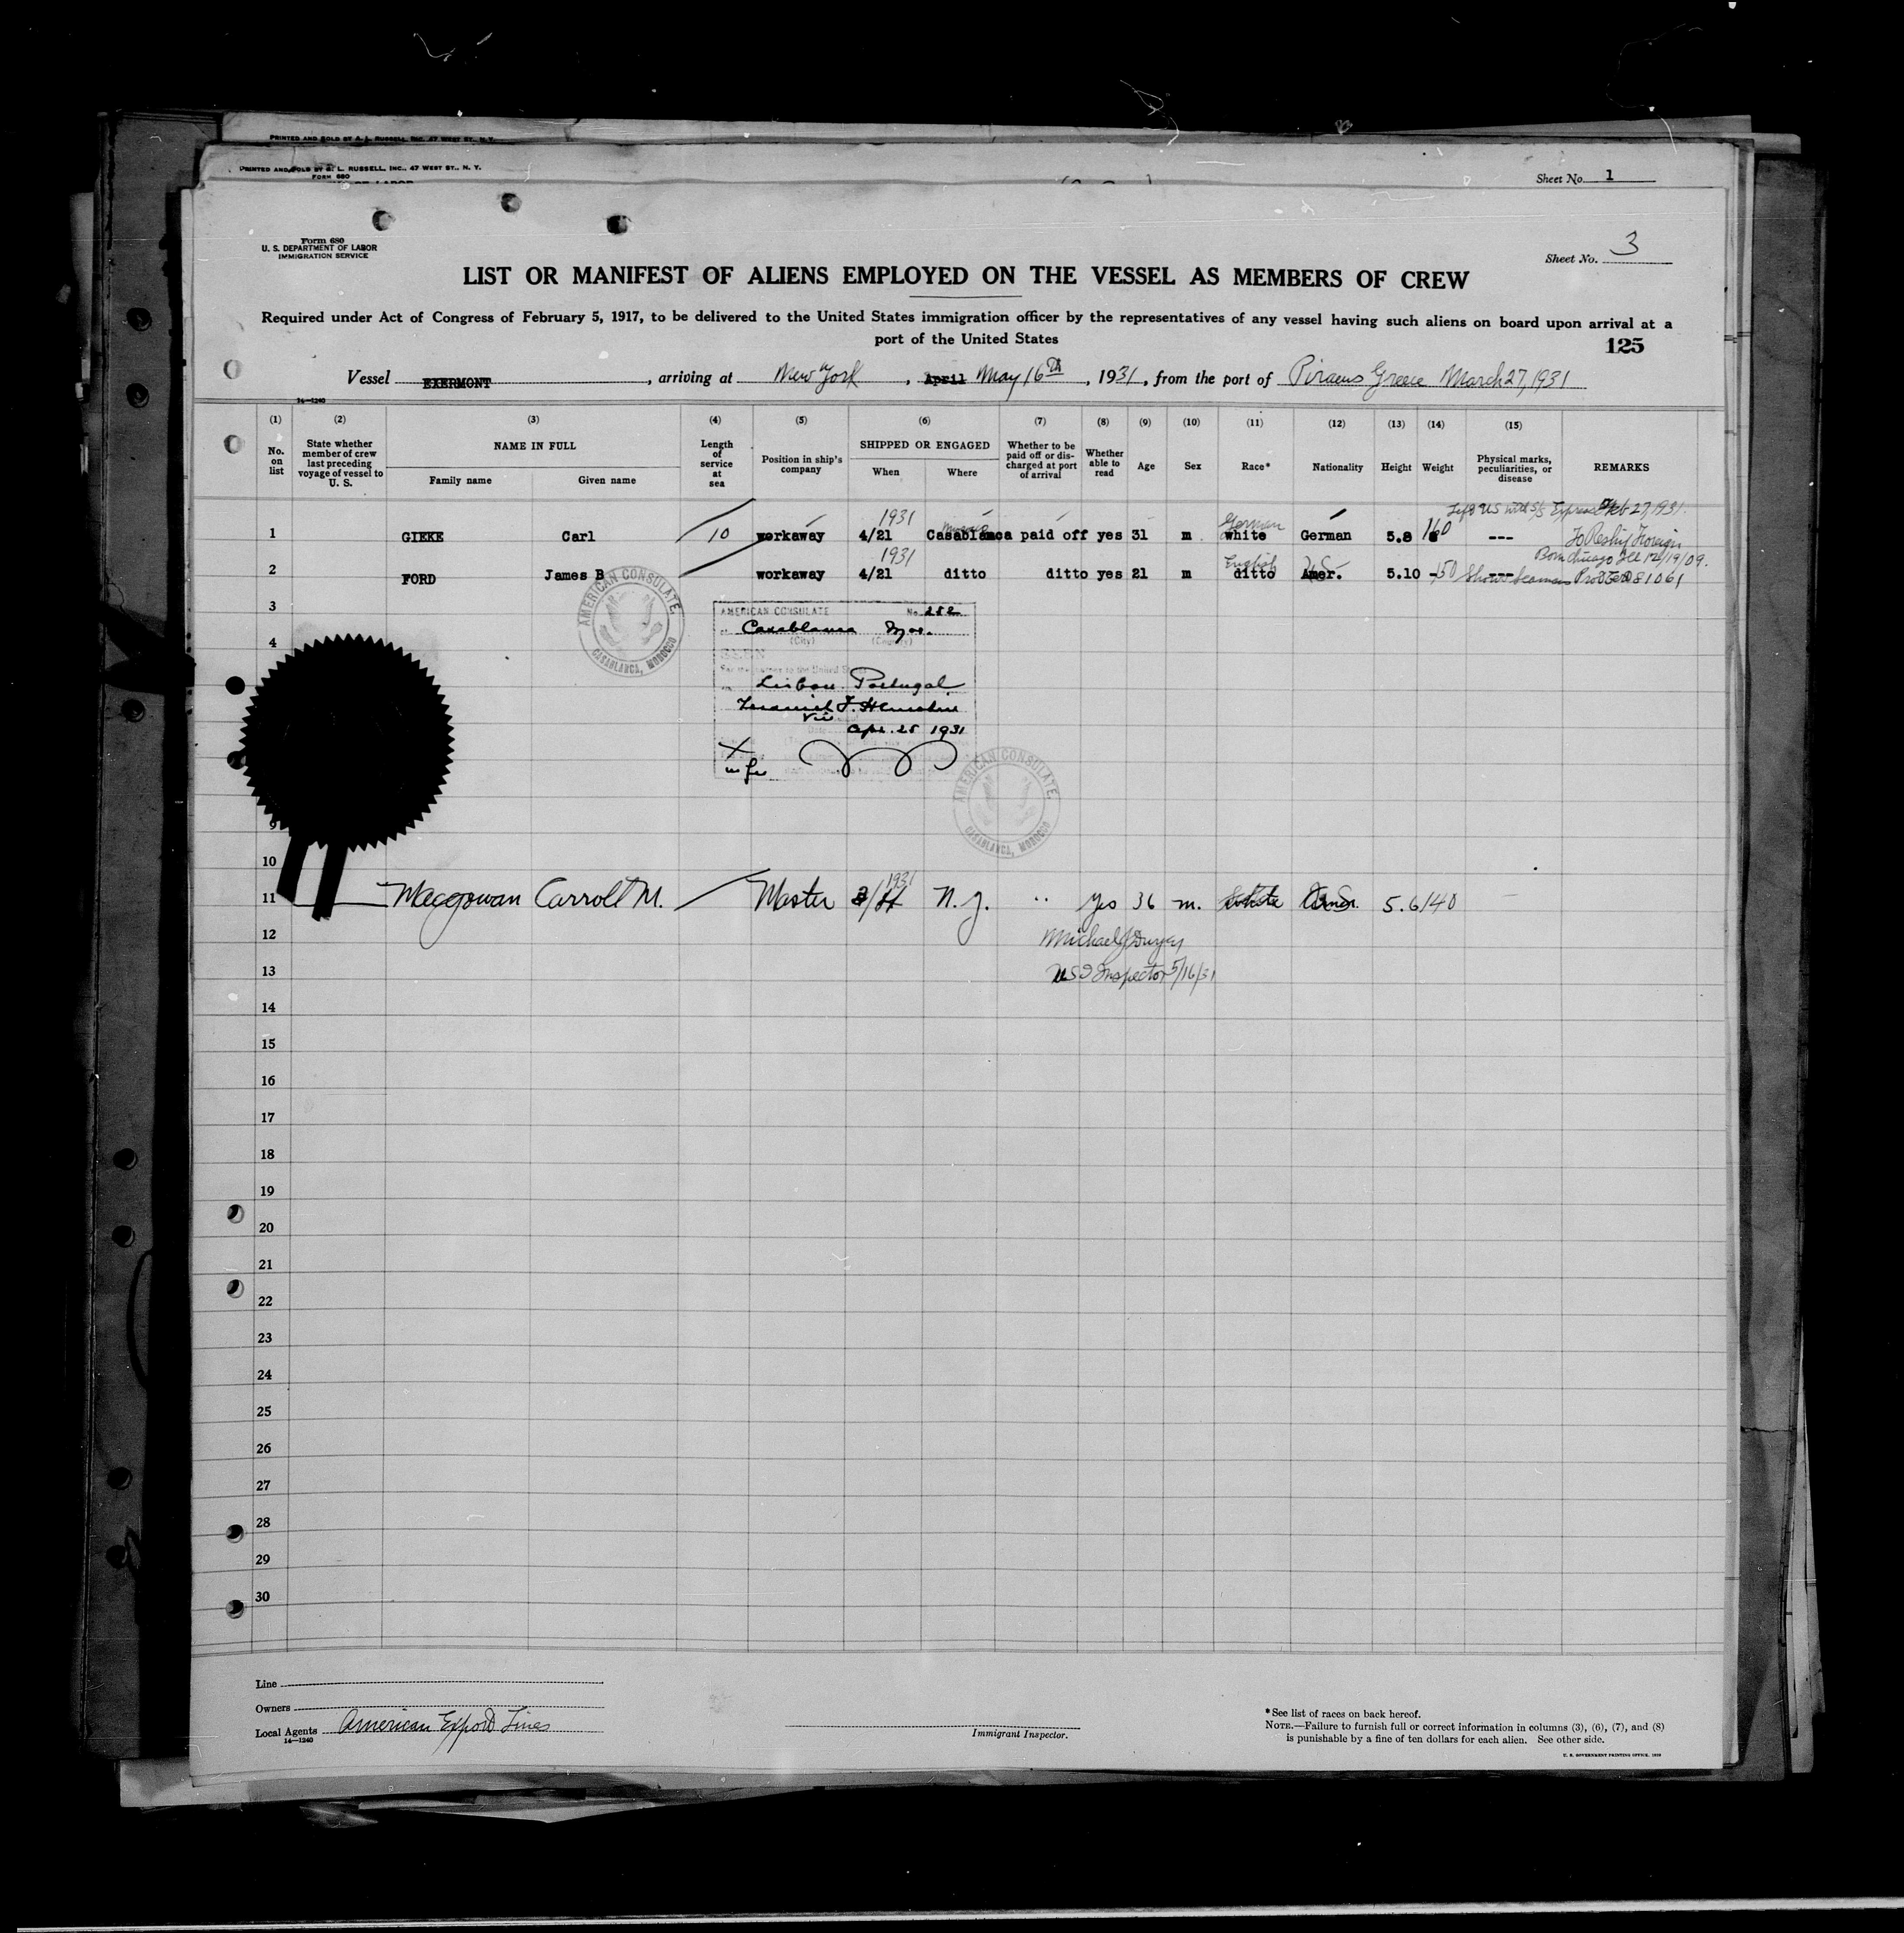 PRINTED AND SOLD BY A. L. RUSSELL, INC. 47 WEST ST., N. Y.
PRINTED AND SOLD BY A. L. RUSSELL, INC., 47 WEST ST., N. Y.
FORM 680
Sheet No. 1
Form 680
U. S. DEPARTMENT OF LABOR
IMMIGRATION SERVICE
Sheet No. 3
LIST OR MANIFEST OF ALIENS EMPLOYED ON THE VESSEL AS MEMBERS OF CREW
Required under Act of Congress of February 5, 1917, to be delivered to the United States immigration officer by the representatives of any vessel having such aliens on board upon arrival at a
port of the United States
125
Vessel EXERMONT, arriving at New York, April May 16th, 1931, from the port of Piraeus Greece March 27, 1931
14—1240
(1) (2) (3) (4) (5) (6) (7) (8) (9) (10) (11) (12) (13) (14) (15)
No. on list
State whether member of crew last preceding voyage of vessel to U. S.
NAME IN FULL
Family name
Given name
Length of service at sea
Position in ship's company
SHIPPED OR ENGAGED
When
Where
Whether to be paid off or discharged at port of arrival
Whether able to read
Age
Sex
Race*
Nationality
Height
Weight
Physical marks, peculiarities, or disease
REMARKS
1931 German Left US with S/S Feb 27, 1931.
1 GIEKE Carl 10 workaway 4/21 Casablanca paid off yes 31 m white German 5.8 160 --- To Reship Foreign
1931 English Born Chicago Ill 12/19/09.
2 FORD James B workaway 4/21 ditto ditto yes 21 m ditto Amer. U.S. 5.10 150 --- Shows Seamans 81061
3
4
AMERICAN CONSULATE, CASABLANCA, MOROCCO
AMERICAN CONSULATE No. 252
Casablanca Mor.
(City) (Country)
SEEN
Lisbon Portugal
Apr. 25 1931
AMERICAN CONSULATE, CASABLANCA, MOROCCO
9
10
1931
11 Macgowan Carroll M. Master N.Y. " Yes 36 m. white Amer. 5.6 140 —
12 Michael J
13 USI Inspector 5/16/31
14
15
16
17
18
19
20
21
22
23
24
25
26
27
28
29
30
Line
Owners
Local Agents American Export Lines
14—1240
Immigrant Inspector.
*See list of races on back hereof.
NOTE.—Failure to furnish full or correct information in columns (3), (6), (7), and (8)
is punishable by a fine of ten dollars for each alien. See other side.
U. S. GOVERNMENT PRINTING OFFICE